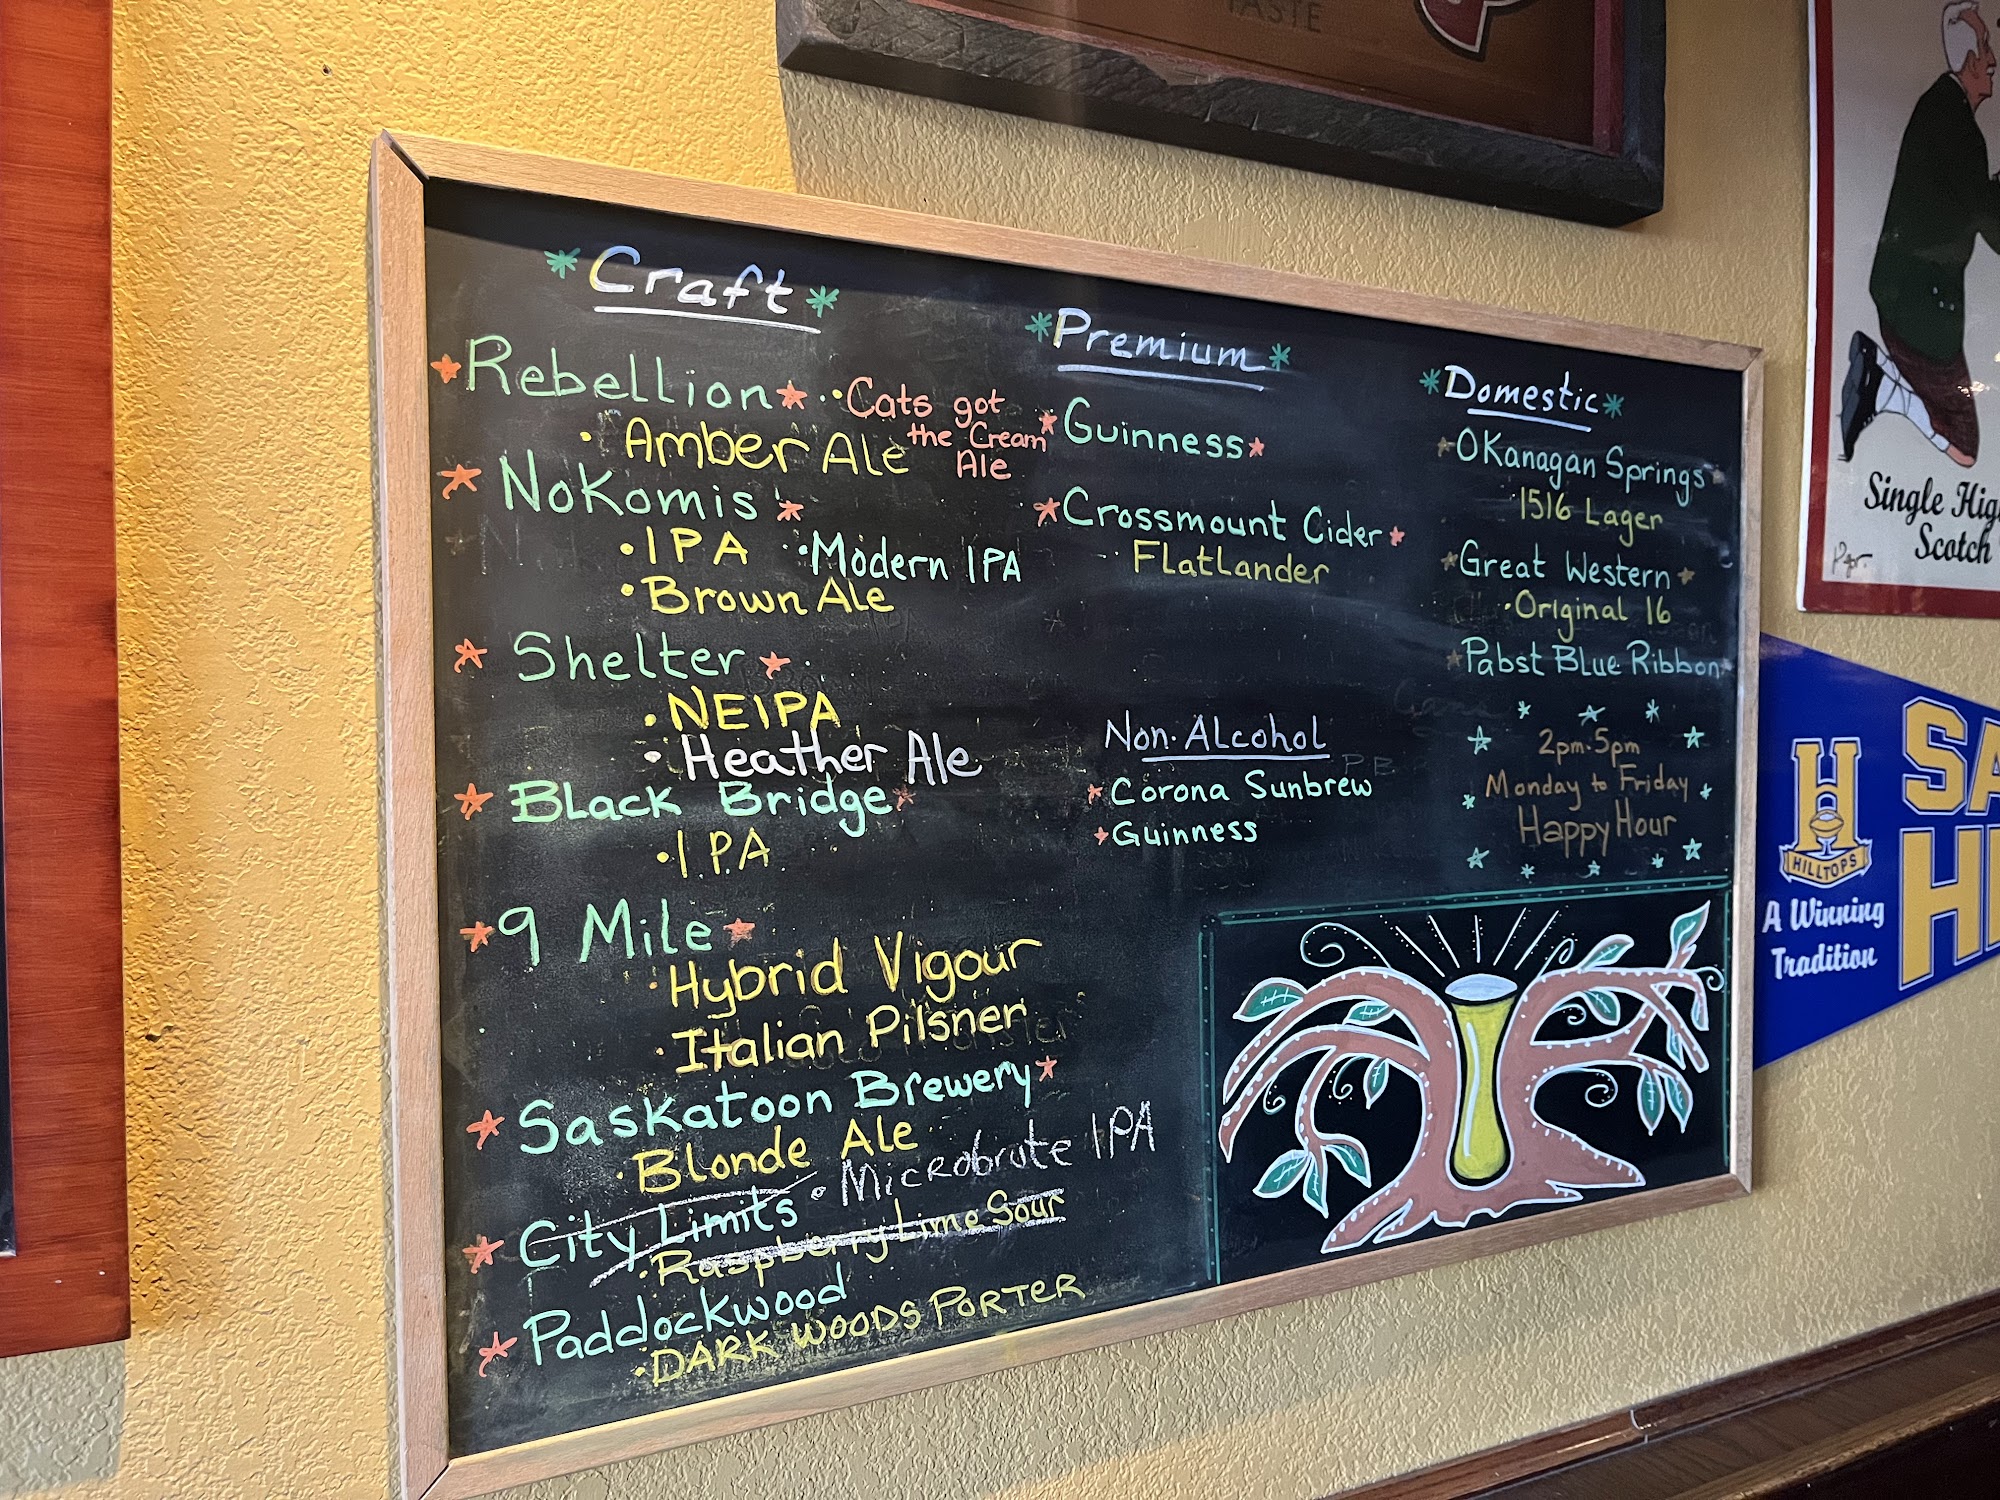 TASTE
Craft
Rebellion
Amber Ale
Cats got
the Cream
Ale
Nokomis
IPA
Modern IPA
Brown Ale
Shelter
NEIPA
Heather Ale
Black Bridge
IPA
9 Mile
Hybrid Vigour
Italian Pilsner
Saskatoon Brewery
Blonde Ale
Microbrute IPA
City Limits
Raspberry Lime Sour
Paddockwood
DARK WOODS PORTER
Premium
Guinness
Crossmount Cider
Flatlander
Non-Alcohol
Corona Sunbrew
Guinness
Domestic
Okanagan Springs
1516 Lager
Great Western
Original 16
Pabst Blue Ribbon
2pm-5pm
Monday to Friday
Happy Hour
Single
Scotch
H
HILLTOPS
A Winning
Tradition